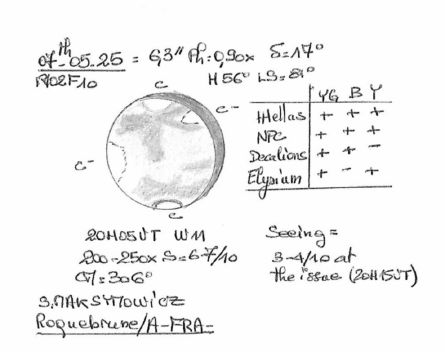 07-05-25 = 6,3" Ph=0,90x δ=17°
th
H 56° LS=81°
C
C-
C-
C
YG B Y
Hellas + + +
NPC + + +
Decalions + + -
Elysium + - +
20H05UT WM
200-250x S=6-7/10
CM=306°
Seeing=
3-4/10 at
the issue (20H15UT)
S.MAKSYMOWICZ
Roquebrune/A-FRA-